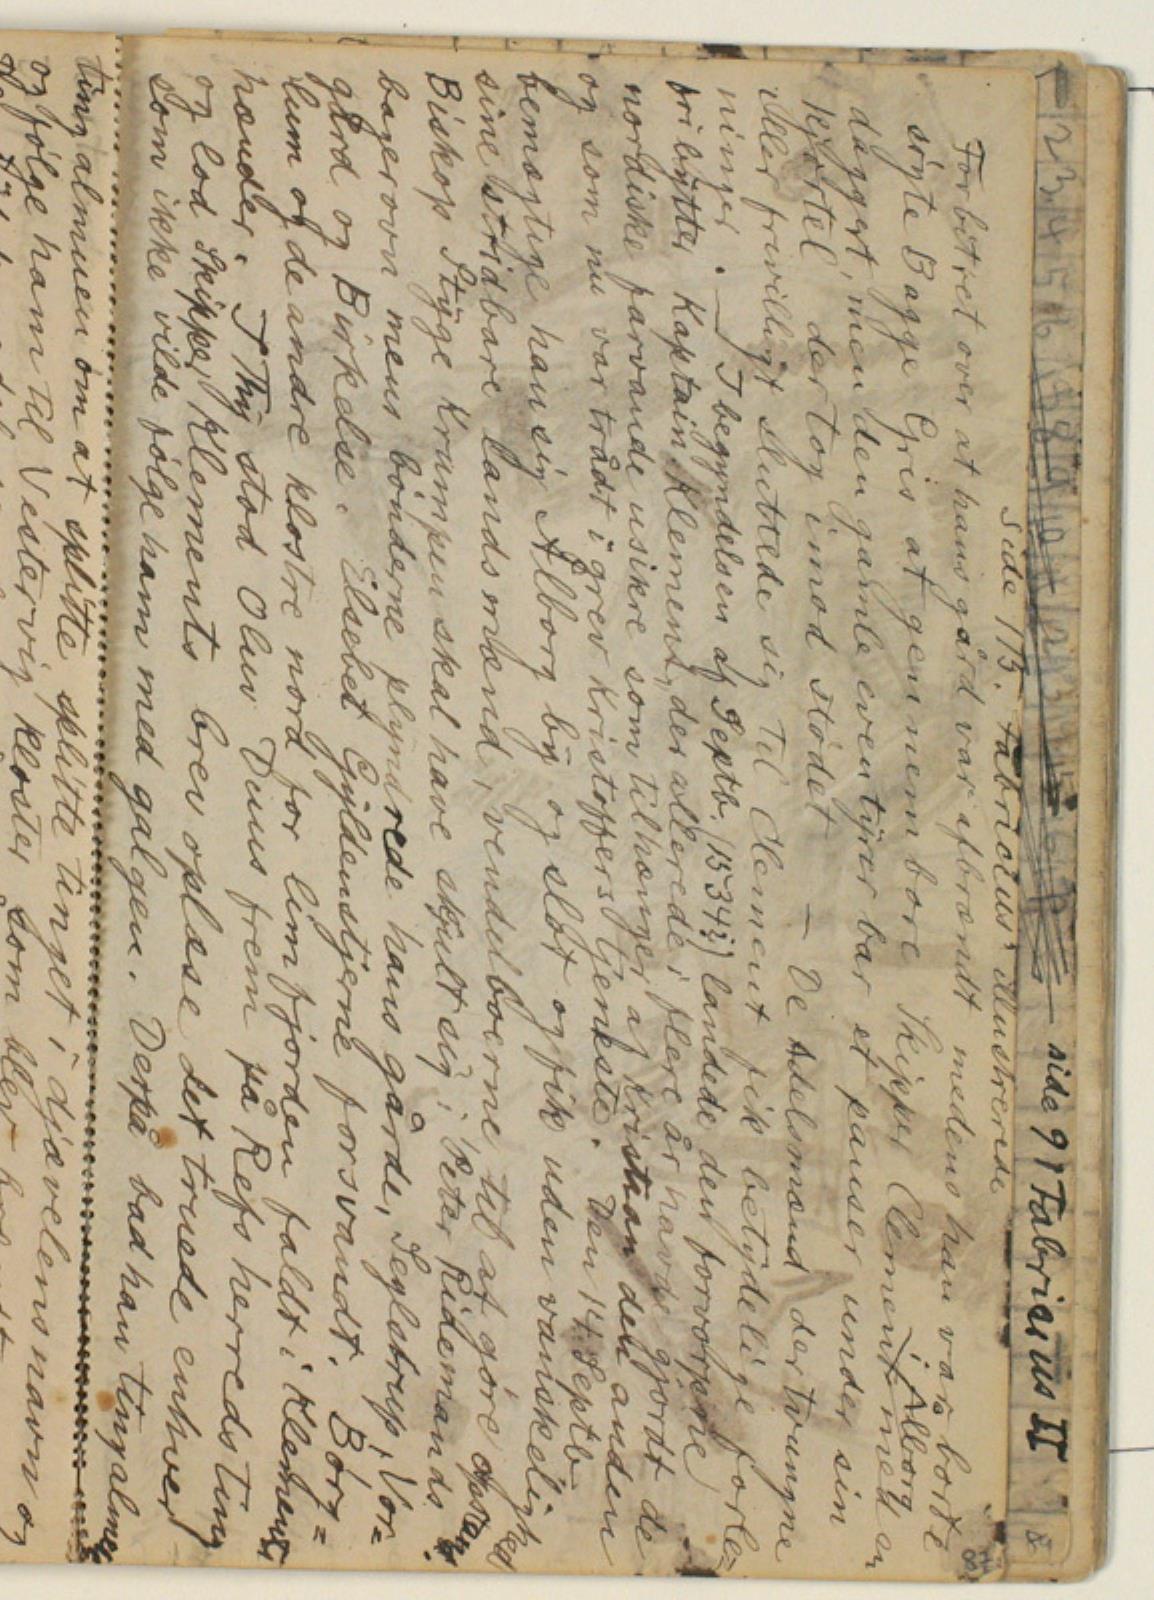 side 91 Fabricius II
side 173. Fabricius' illustrerede
Forbitret over at hans gård var afbrændt medens han var borte
i Ålborg
søgte Bagge Gris at gennem bore Skipper Clement med en
daggert, men den gamle eventyrer bar et panser under sin
kjortel der tog imod stødet. — De adelsmænd der tvungne
eller frivilligt sluttede sig til Clement fik betydelige forle=
ninger. — I begyndelsen af Septb. (1534?) landede den forvorpne
fribytter Kaptain Klement, der allerede i flere år havde gjordt de
nordiske farvande usikre som tilhænger af Kristian den anden
og som nu var trådt i grev Kristoffers tjeneste. Den 14. Septb.
bemægtige han sig Ålborg by og slot og fik uden vanskelighed
sine stridbare landsmænd, vendelboerne til at gøre opstand.
Biskop Stÿge Krumpen skal have skjult sig i Peter Ridemands
bagerovn mens bönderne plyndrede hans gårde, Seglstrup, Vor=
gård og Birkelse. Elsebet Gyldenstjerne forsvandt. Börg=
lum og de andre klostre nord for limfjorden faldt i Klements
hænder. I Thy stod Oluv Duus frem på Refs herreds ting
og lod Skipper Klements brev oplæse det truede enhver
som ikke vilde følge ham med galgen. Derpå bad han tingalmuen
ting almuen om at splitte splitte tinget i djævelens navn og
og følge ham til Vestervig kloster som blev